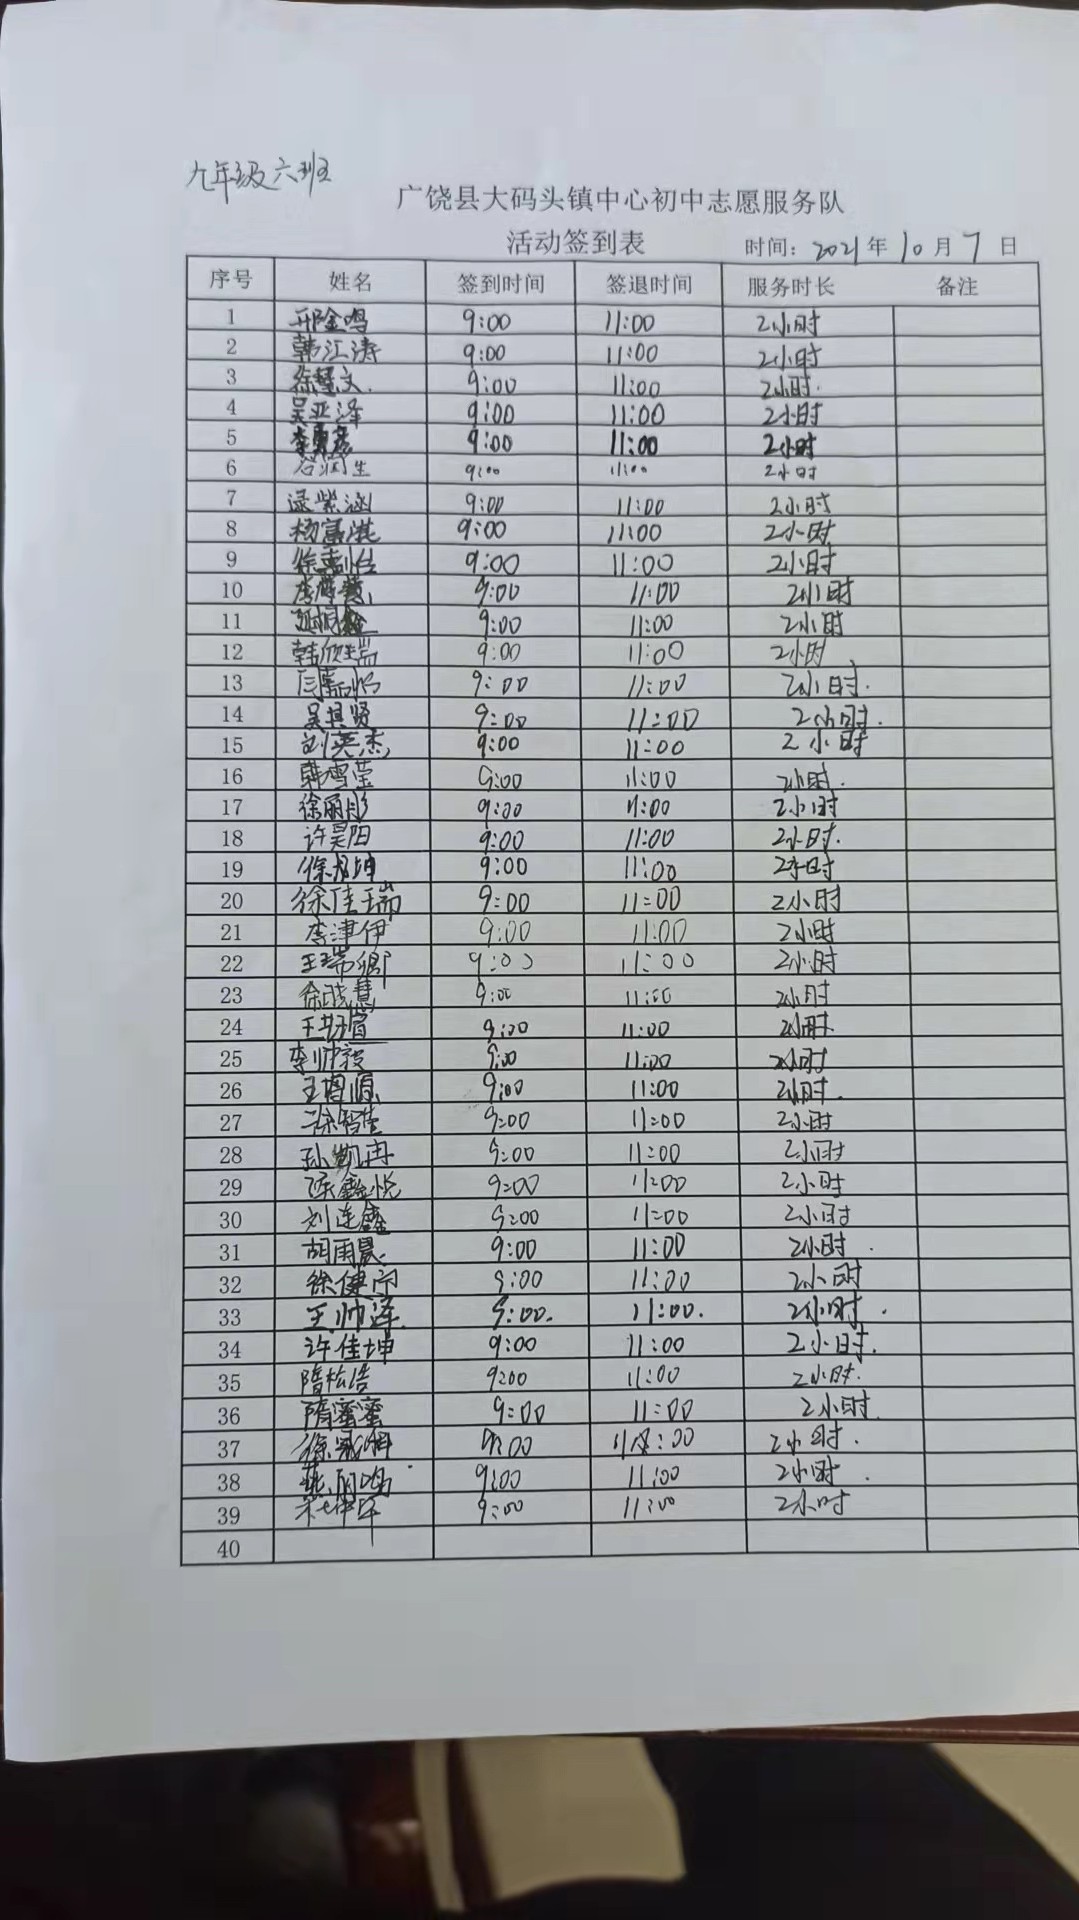 九年级六班
广饶县大码头镇中心初中志愿服务队
活动签到表
时间：2021年10月7日
序号 姓名 签到时间 签退时间 服务时长 备注
1 邢金鸣 9:00 11:00 2小时
2 韩江涛 9:00 11:00 2小时
3 徐慧文. 9:00 11:00 2小时.
4 吴亚泽 9:00 11:00 2小时
5 9:00 11:00 2小时
6 谷润生 9:00 11:00 2小时
7 逯紫涵 9:00 11:00 2小时
8 杨富淇 9:00 11:00 2小时
9 徐嘉怡 9:00 11:00 2小时
10 9:00 11:00 2小时
11 9:00 11:00 2小时
12 韩欣瑞 9:00 11:00 2小时
13 9:00 11:00 2小时.
14 吴其贤 9:00 11:00 2小时.
15 刘英杰 9:00 11:00 2小时
16 韩雪莹 9:00 11:00 2小时.
17 徐丽彤 9:00 11:00 2小时
18 许昊阳 9:00 11:00 2小时.
19 9:00 11:00 2小时
20 徐佳瑞 9:00 11:00 2小时
21 李津伊 9:00 11:00 2小时
22 王瑞卿 9:00 11:00 2小时
23 徐晓慧 9:00 11:00 2小时
24 9:00 11:00 2小时
25 李帅毅 9:00 11:00 2小时
26 王增源 9:00 11:00 2小时.
27 徐智莹 9:00 11:00 2小时
28 孙凯冉 9:00 11:00 2小时
29 陈鑫悦 9:00 11:00 2小时
30 刘连鑫 9:00 11:00 2小时
31 胡雨晨 9:00 11:00 2小时.
32 徐健宁 9:00 11:00 2小时
33 王帅泽. 9:00. 11:00. 2小时.
34 许佳坤 9:00 11:00 2小时.
35 隋松浩 9:00 11:00 2小时.
36 隋蜜蜜 9:00 11:00 2小时.
37 :00 :00 2小时.
38 9:00 11:00 2小时.
39 9:00 11:00 2小时
40